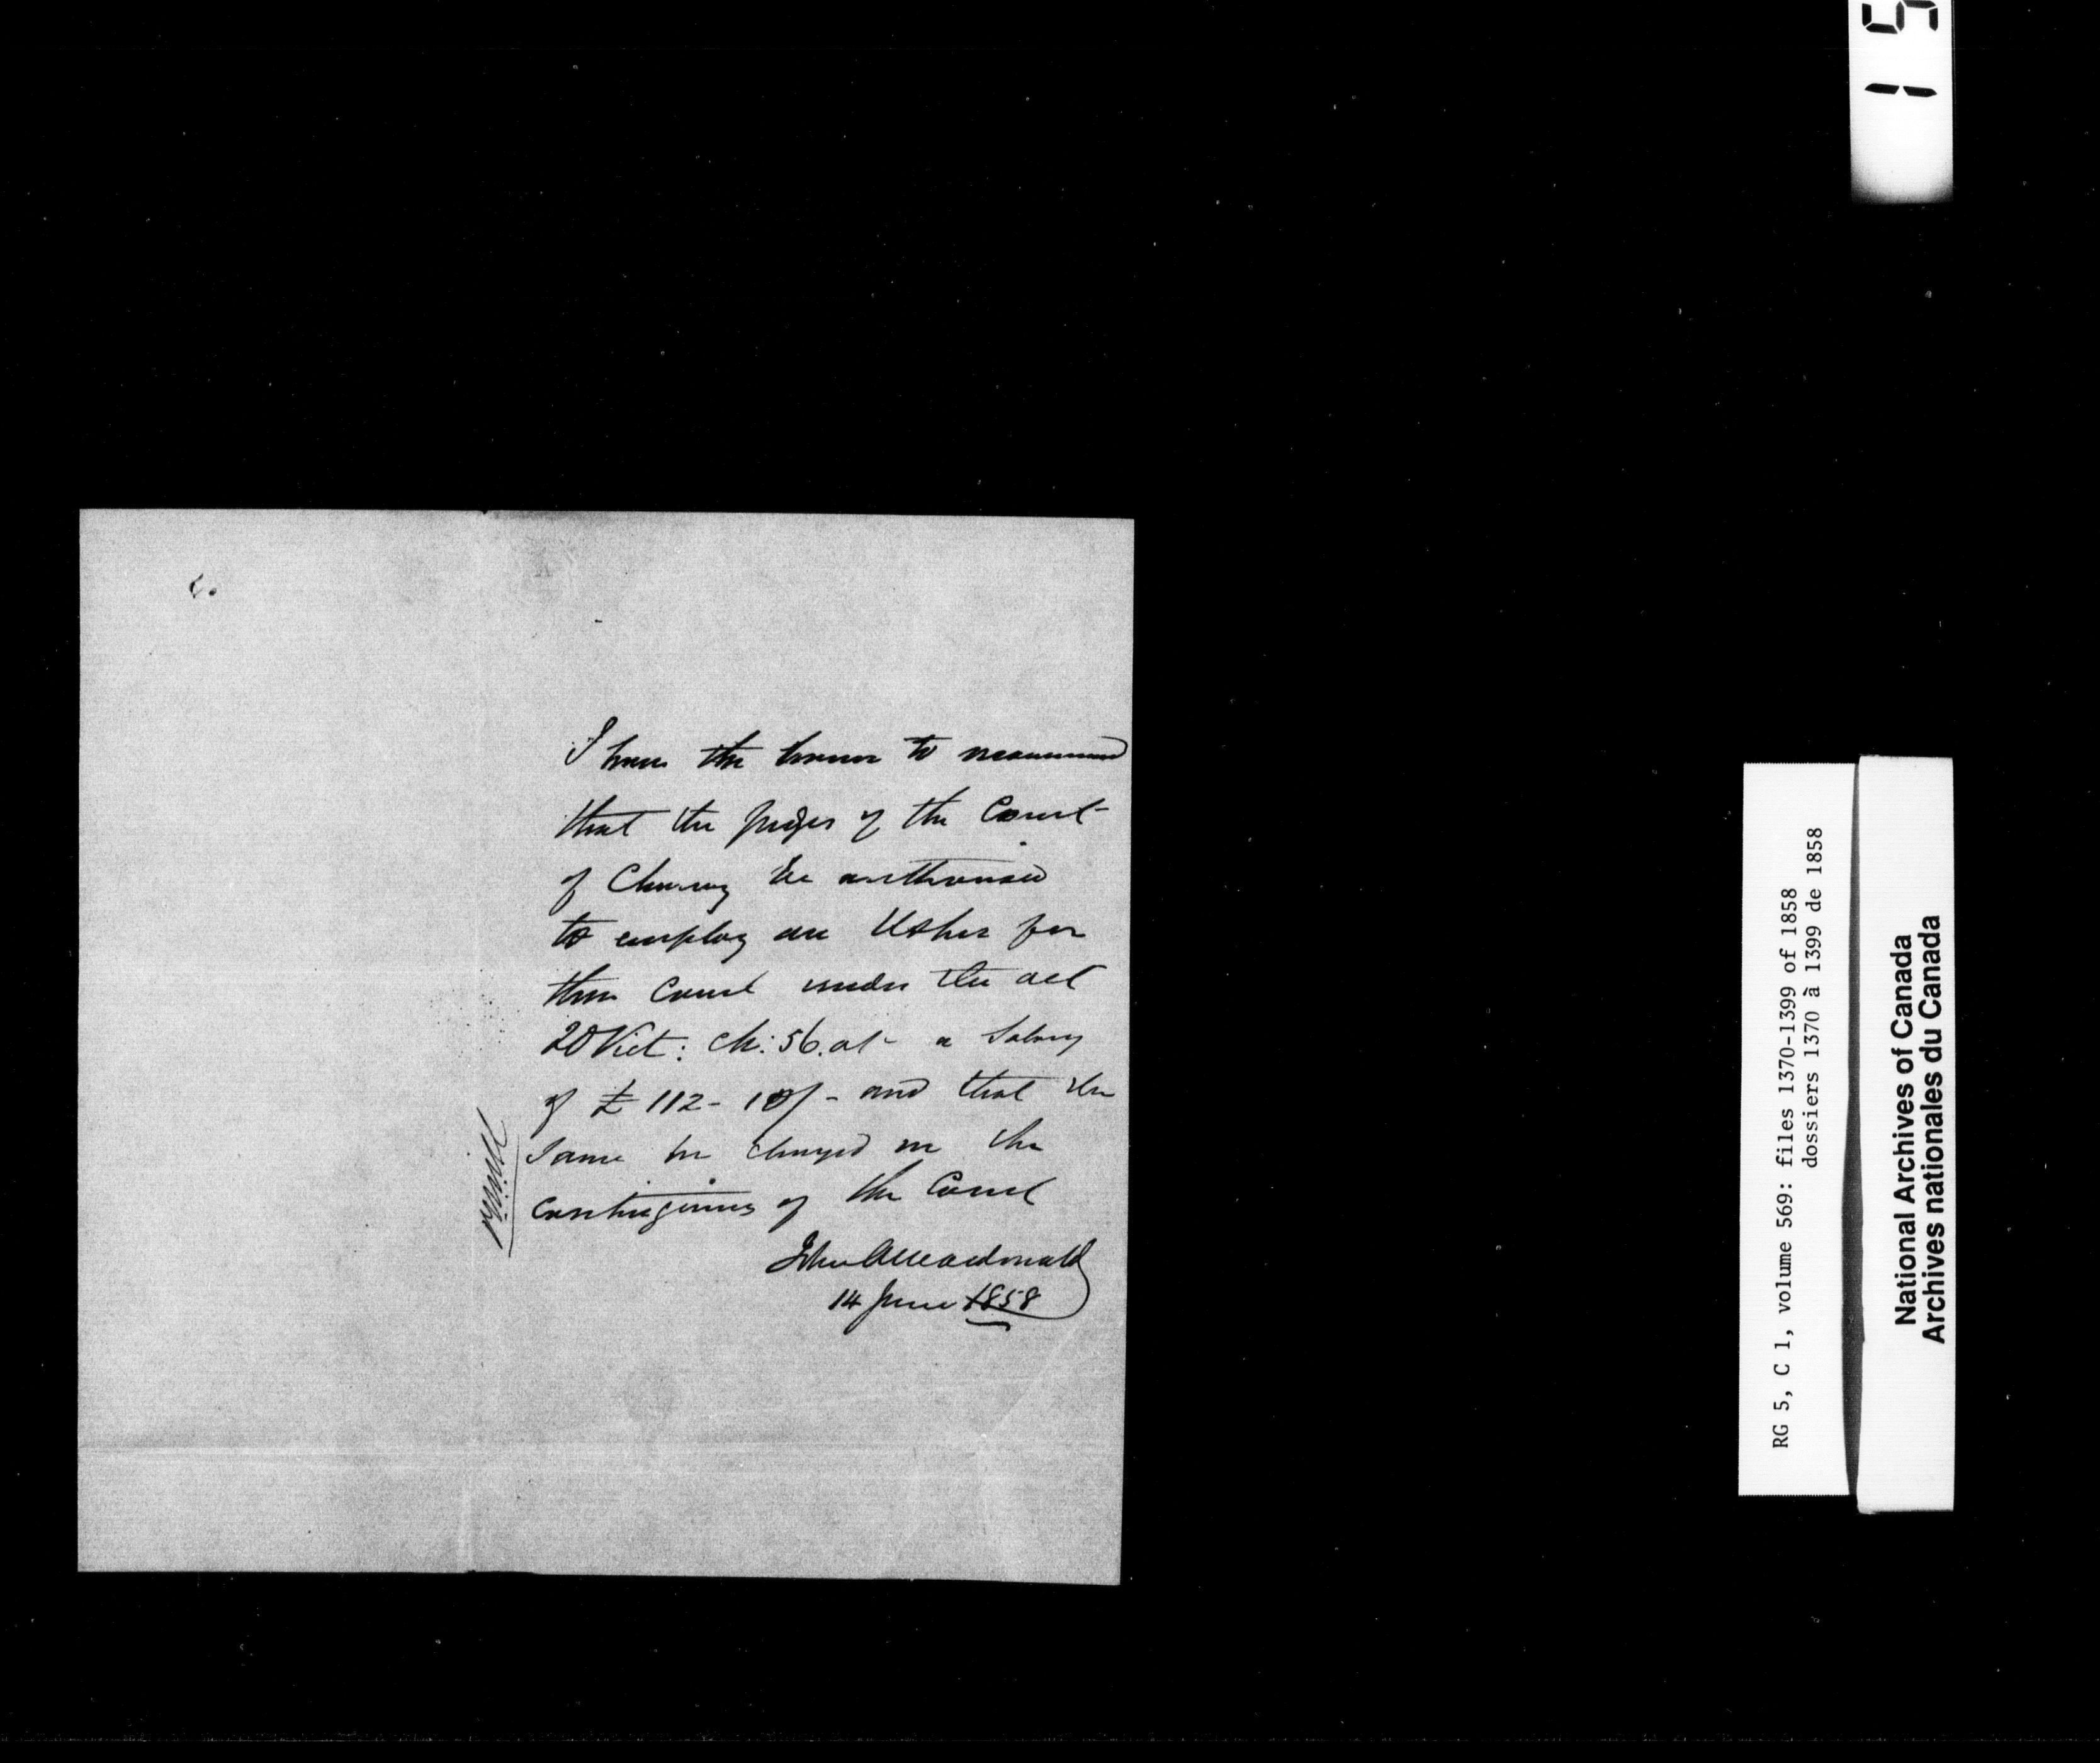 I have the honor to recommend
that the Judges of the Court
of Chancery be authorised
to employ an Usher for
their Court under the act
20 Vict: Ch: 56. at a Salary
of £112-10/- and that the
same be charged in the
Contingencies of the Court
John A Macdonald
14 June 1858
15
RG 5, C 1, volume 569: files 1370-1399 of 1858
dossiers 1370 à 1399 de 1858
National Archives of Canada
Archives nationales du Canada